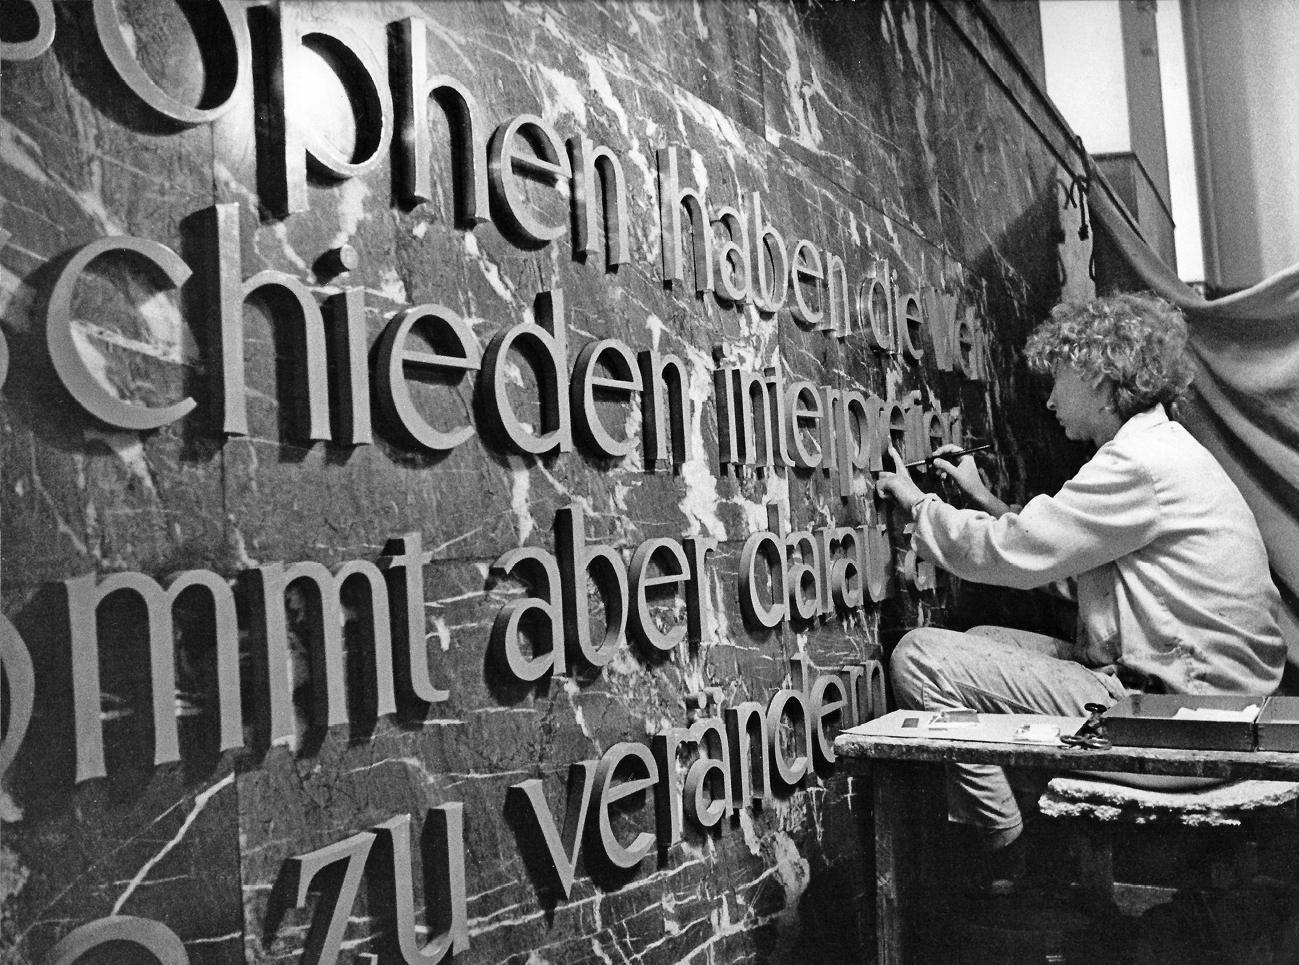 ophen haben die Wel
chieden interpretier
ommt aber darauf a
zu verändern